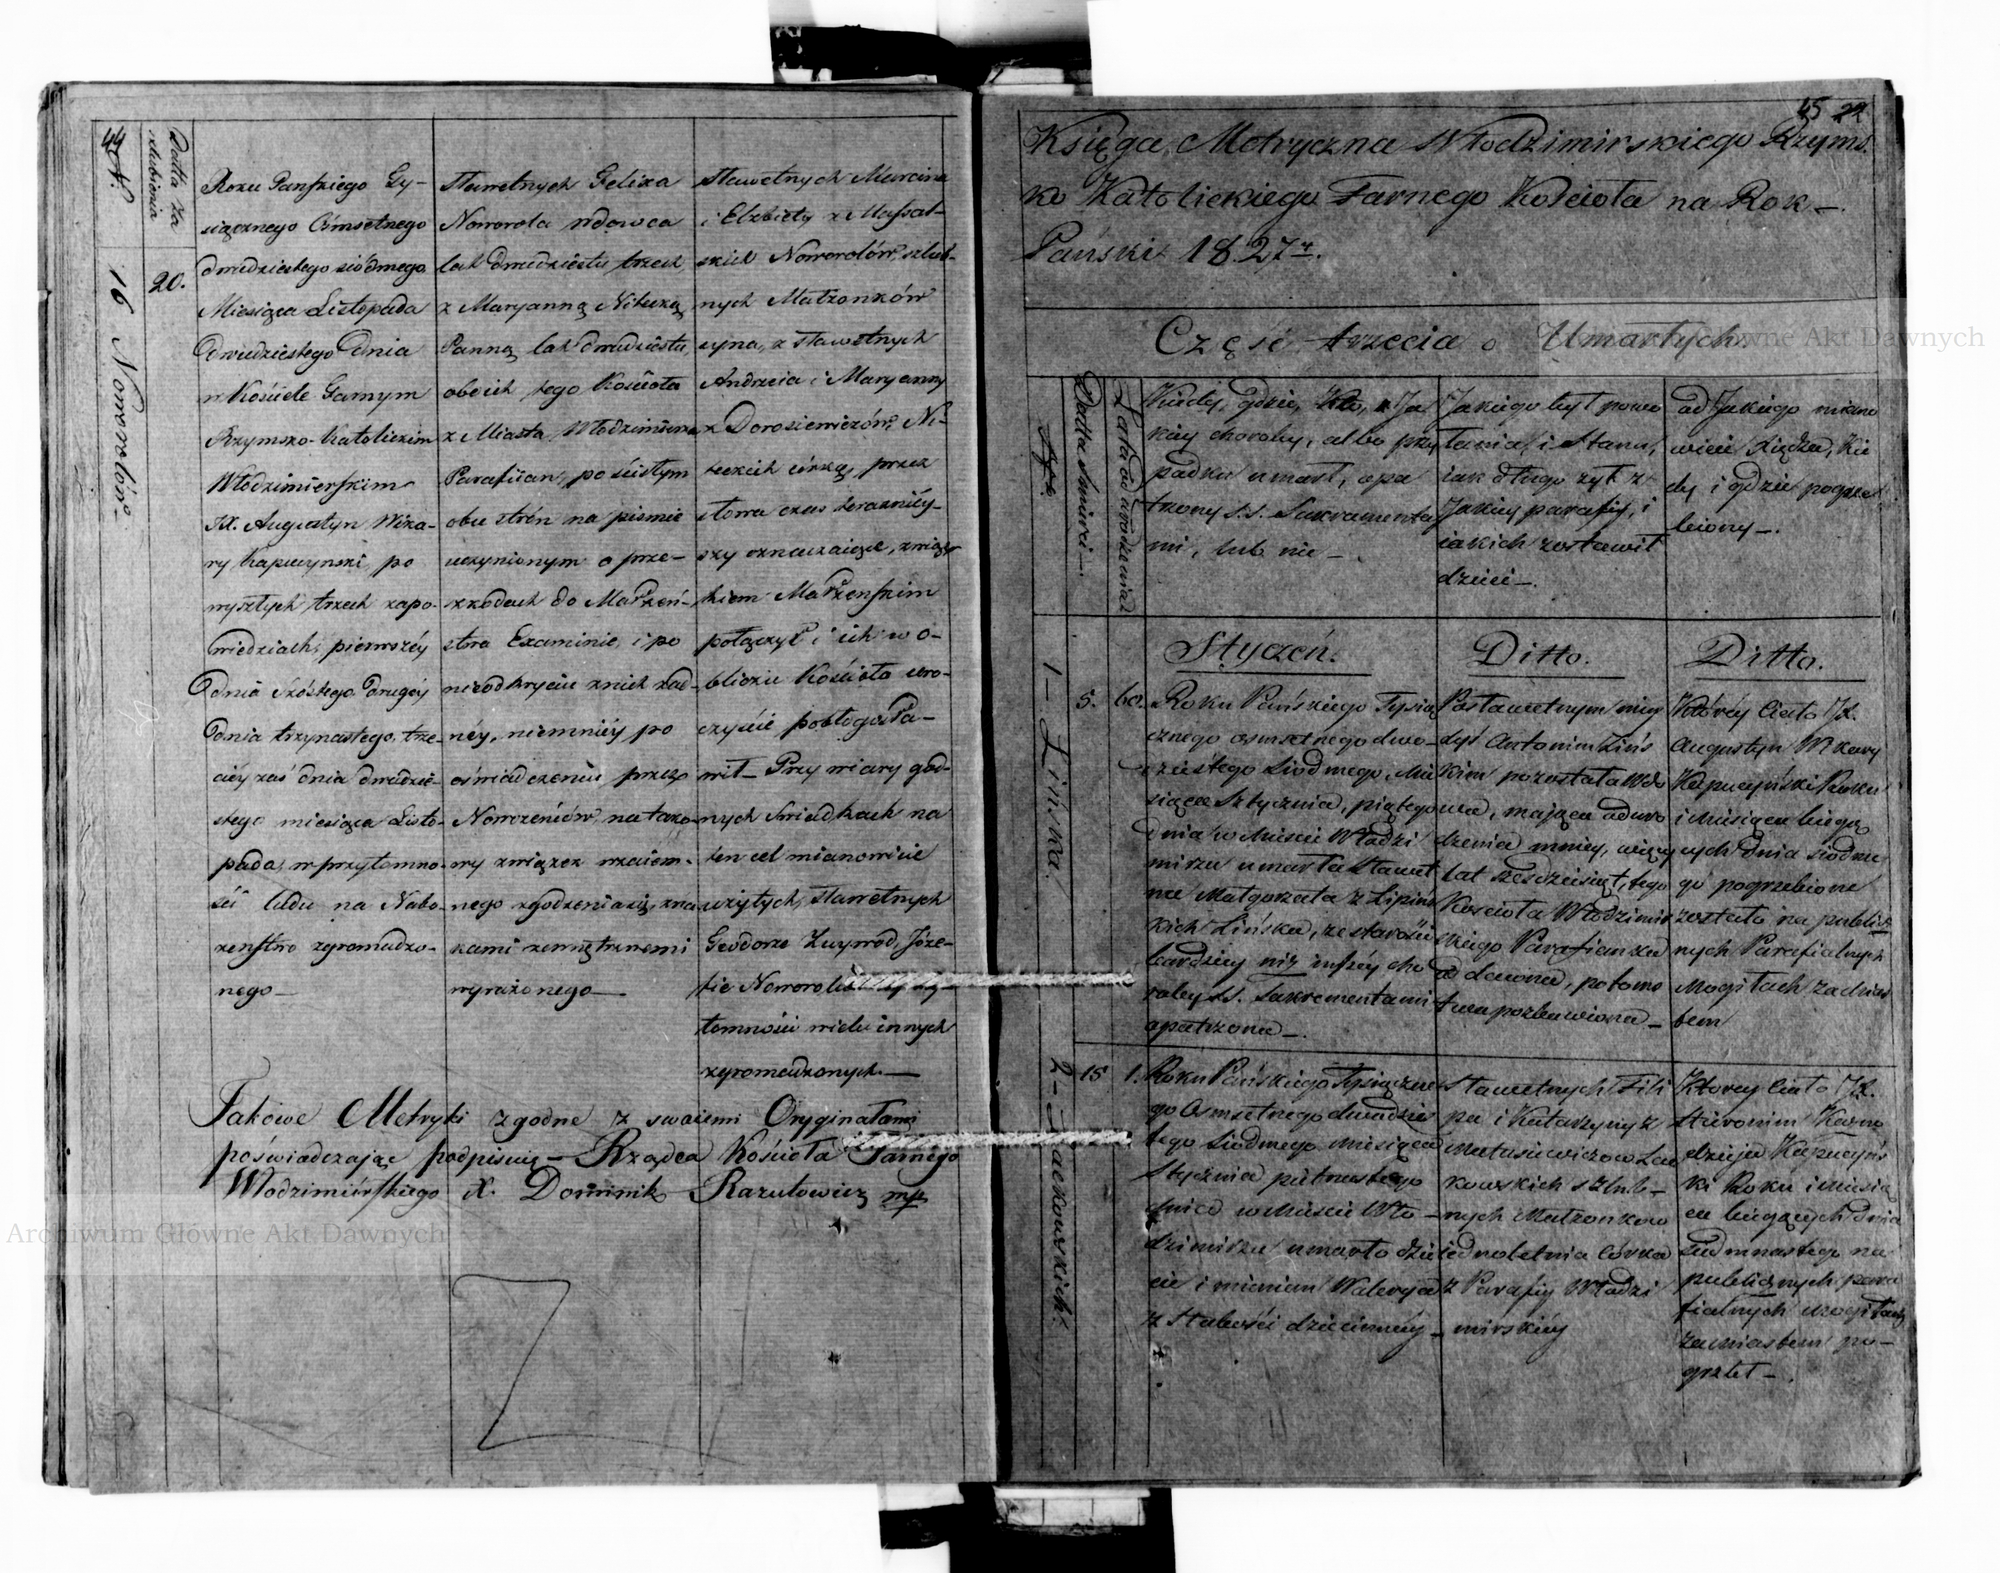 44
N.
Datta za
szlubienia
16 Noworolów.
20.
Roku Pańskiego Ty-
siącznego Ośmsetnego
dwudziestego siódmego
Miesiąca Listopada
Dwudziestego Dnia
w Kościele Farnym
Rzymsko-Katolickim
Włodzimierskim
JX. Augustyn Wika-
ry Kapucynski, po
wyszłych trzech zapo-
wiedziach, pierwszéy
dnia szóstego drugéy
dnia trzynastego, trze-
ciéy zaś dnia dwudzie-
stego miesiąca Listo-
pada, w przytomno-
ści ludu na Nabo-
żeństwo zgromadzo-
nego —
sławetnych Felixa
Noworola wdowca
lat dwudziestu trzech
z Maryanną Nikecką
Panną lat dwudziestu,
oboich tego Kościoła
z Miasta Włodzimierza
Parafiian, po ścisłym
obu strón na pismie
uczynionym o prze-
szkodach do Małżeń-
stwa Examinie, i po
nieodkryciu z nich żad-
néy, niemniéy po
oświadczeniu przez
Nowożeńców na tako-
wy związek wzaiem-
nego zgodzenia się, zna
kami zewnętrznemi
wyrażonego —
sławetnych Marcina
i Elżbiety z Massal-
skich Noworolów szlub-
nych Małżonków
syna, z sławetnych
Andrzeia i Maryanny
z Dorosiewiczów Ni-
keckich córką, przez
słowa czas teraznièy-
szy oznaczaiące, związ-
kiem Małżeńskim
połączył i ich w o-
bliczu Kościoła uro-
czyście pobłogosła-
wił — Przy wiary god-
nych Swiadkach na
ten cel mianowicie
użytych, sławetnych
Teodorze Zwyrod, Józe-
fie Noworolu
tomności wielu innych
zgromadzonych. —
Takowe Metryki zgodne z swaiemi Oryginałami
poświadczając podpisuię — Rządca Kościoła Farnego
Włodzimirskiego X. Dominik Razutowicz mp
45 22
Księga Metryczna Włodzimirskiego Rzyms.
ko Katolickiego Farnego Kościoła na Rok —
Pański 1827
Część trzecia o Umarłych.
Datta Smierci —.
Lata od urodzenia
Kiedy, gdzie, Kto, z Ja
kiey choroby, albo przy
padku umarł, opa
trzony S.S. Sakramenta
mi, lub nie —
Jakiego był powo
łania, i Stanu,
iak długo żył z
Jakiey parafiy, i
iakich zostawił
dzieci —.
od Jakiego miano
wicie Xiędza, Kie
dy i gdzie pogrze
biony —.
Styczeń.
Ditto.
Ditto.
1 — Lińska.
5.
60.
Roku Pańskiego Tysią
cznego osmsetnego dwu-
dziestego Siodmego, Mie
siąca Stycznia, piątego
dnia w Mieście Włodzi
mirzu umarła Sławet
na Małgorzata z Lipiń
skich Lińska, ze starości
bardziey niż inszéy cho
roby S.S. Sakramentami
opatrzona —.
Po sławetnym niey
dyś Antonim Lińs
kim pozostała Wdo
wa, maiąca od uro
dzenia mniey, więcy
Lat szesdziesiąt, tego
Kościoła Włodzimir
skiego Parafianka
z dawna, potoms
twa pozbawiona —
Którey Ciało JX.
Augustyn Wikary
Kapucyński Roku
i Miesiąca bieżą
cych dnia siodme
go pogrzebione
zostało na public
nych Parafialnych
Mogiłach za mias
tem
2 — Laskowskich.
15
1.
Roku Pańskiego Tysiączne
go Osmsetnego dwudzies
tego Siodmego miesiąca
Stycznia piętnastego
dnia w Mieście Wło —
dzimirzu umarło dzie
cie imieniem Waleryja
z Słabości dziecinnéy —
Sławetnych Fili
pa i Katarzyny z
Matusiewiczow Las
kowskich szlub —
nych Małżonkow
iednoletnia Córka
z Parafiy Włodzi
mirskiéy
Ktorey Ciało JX.
Hieronim Kazno
dzieja Kapucyńs
ki Roku i miesią
ca bieżących dnia
Siedmnastego na
publicznych para
fialnych mogiłach
za miastem po —
grzebł —.
Archiwum Główne Akt Dawnych
Archiwum Główne Akt Dawnych